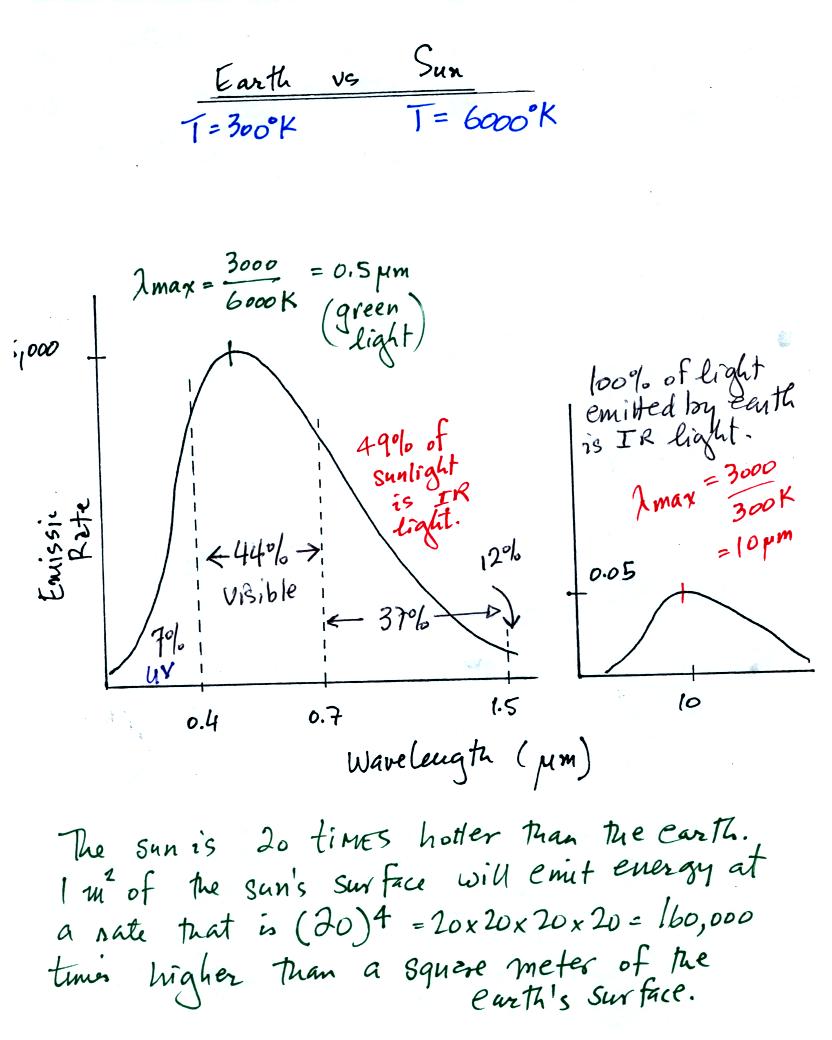 Earth vs Sun
T = 300°K T = 6000°K
λmax = 3000 / 6000K = 0.5 μm
(green light)
,000
100% of light
emitted by earth
is IR light.
49% of
sunlight
is IR
light.
λmax = 3000 / 300K
= 10 μm
Emissic
Rate
44%
visible
12%
0.05
37%
7%
UV
0.4 0.7 1.5 10
Wavelength (μm)
The sun is 20 tiMES hotter than the earth.
1 m² of the sun's surface will emit energy at
a rate that is (20)⁴ = 20x20x20x20 = 160,000
times higher than a square meter of the
earth's surface.